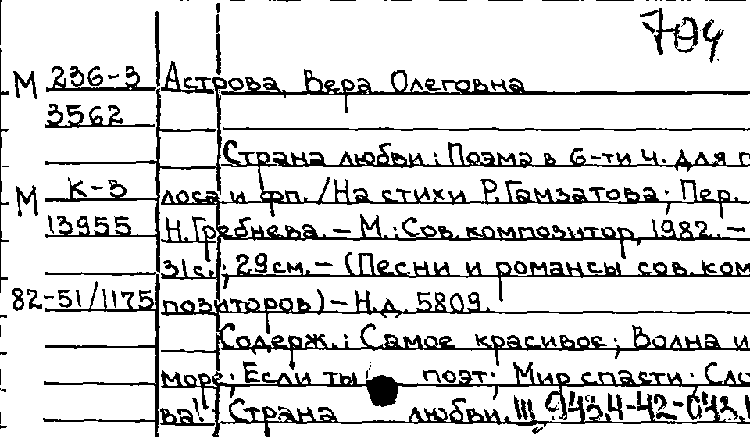 704
М 236-3 Астрова, Вера Олеговна
3562
Страна любви: Поэма в 6-ти ч. для г
М К-3 лоса и фп. /На стихи Р.Гамзатова; Пер.
13955 Н.Гребнева. – М.: Сов. композитор, 1982. –
31с.; 29см. – (Песни и романсы сов. ком
82-51/1175 позиторов) – Н.д. 5809.
Содерж.: Самое красивое; Волна и
море; Если ты поэт; Мир спасти; Сло
ва!; Страна любви.